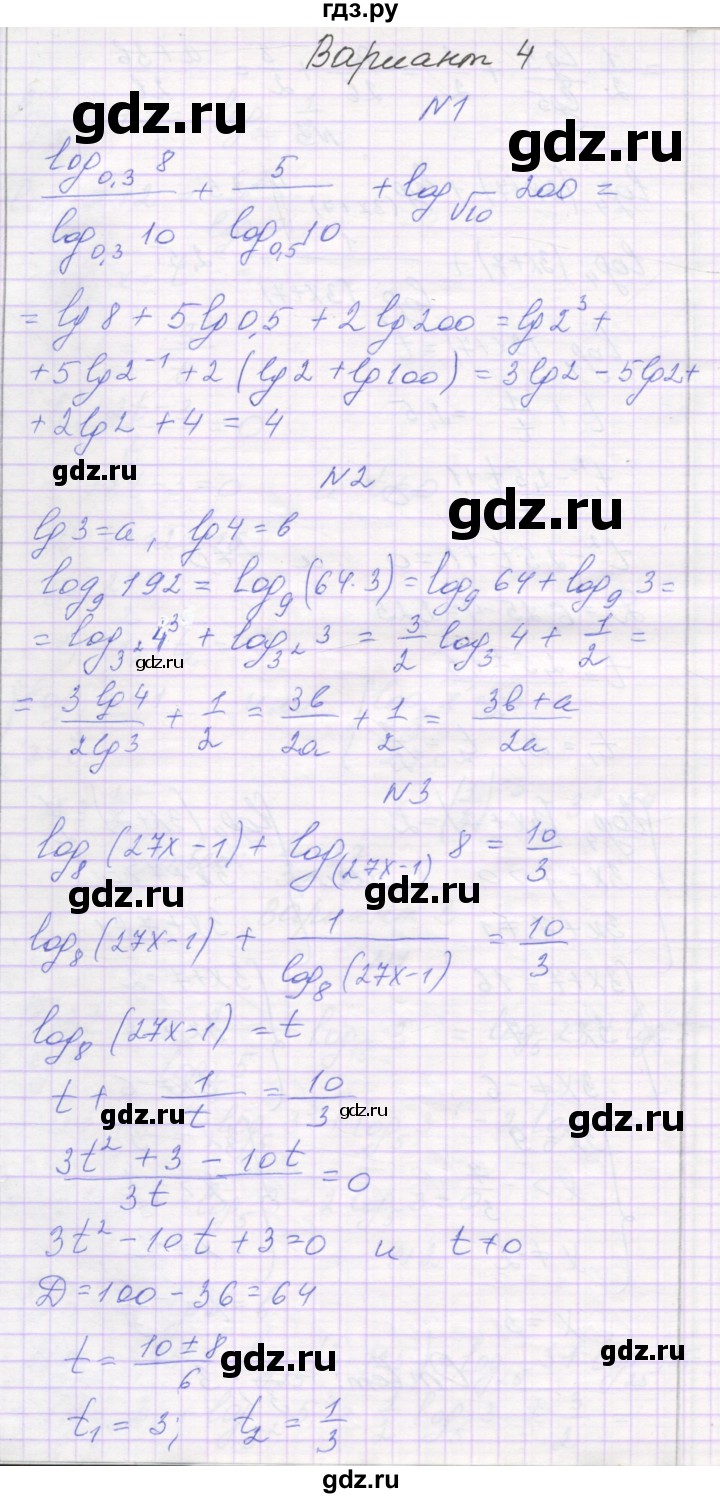 гдз.ру
Вариант 4
gdz.ru
gdz.ru
N1
log₀,₃ 8 / log₀,₃ 10 + 5 / log₀,₅ 10 + log√10 200 =
= lg 8 + 5 lg 0,5 + 2 lg 200 = lg 2³ +
+ 5 lg 2⁻¹ + 2 (lg 2 + lg 100) = 3 lg 2 − 5 lg 2 +
+ 2 lg 2 + 4 = 4
gdz.ru
N2
gdz.ru
lg 3 = a, lg 4 = b
log₉ 192 = log₉ (64·3) = log₉ 64 + log₉ 3 =
= log₃² 4³ + log₃² 3 = 3/2 log₃ 4 + 1/2 =
gdz.ru
= 3 lg 4 / 2 lg 3 + 1/2 = 3b/2a + 1/2 = 3b + a / 2a
N3
log₈ (27x − 1) + log₍₂₇ₓ₋₁₎ 8 = 10/3
gdz.ru
gdz.ru
log₈ (27x − 1) + 1 / log₈ (27x − 1) = 10/3
log₈ (27x − 1) = t
t + 1/t = 10/3
gdz.ru
gdz.ru
gdz.ru
3t² + 3 − 10t / 3t = 0
3t² − 10t + 3 = 0 и t ≠ 0
D = 100 − 36 = 64
t = 10 ± 8 / 6
gdz.ru
gdz.ru
t₁ = 3; t₂ = 1/3
gdz.ru